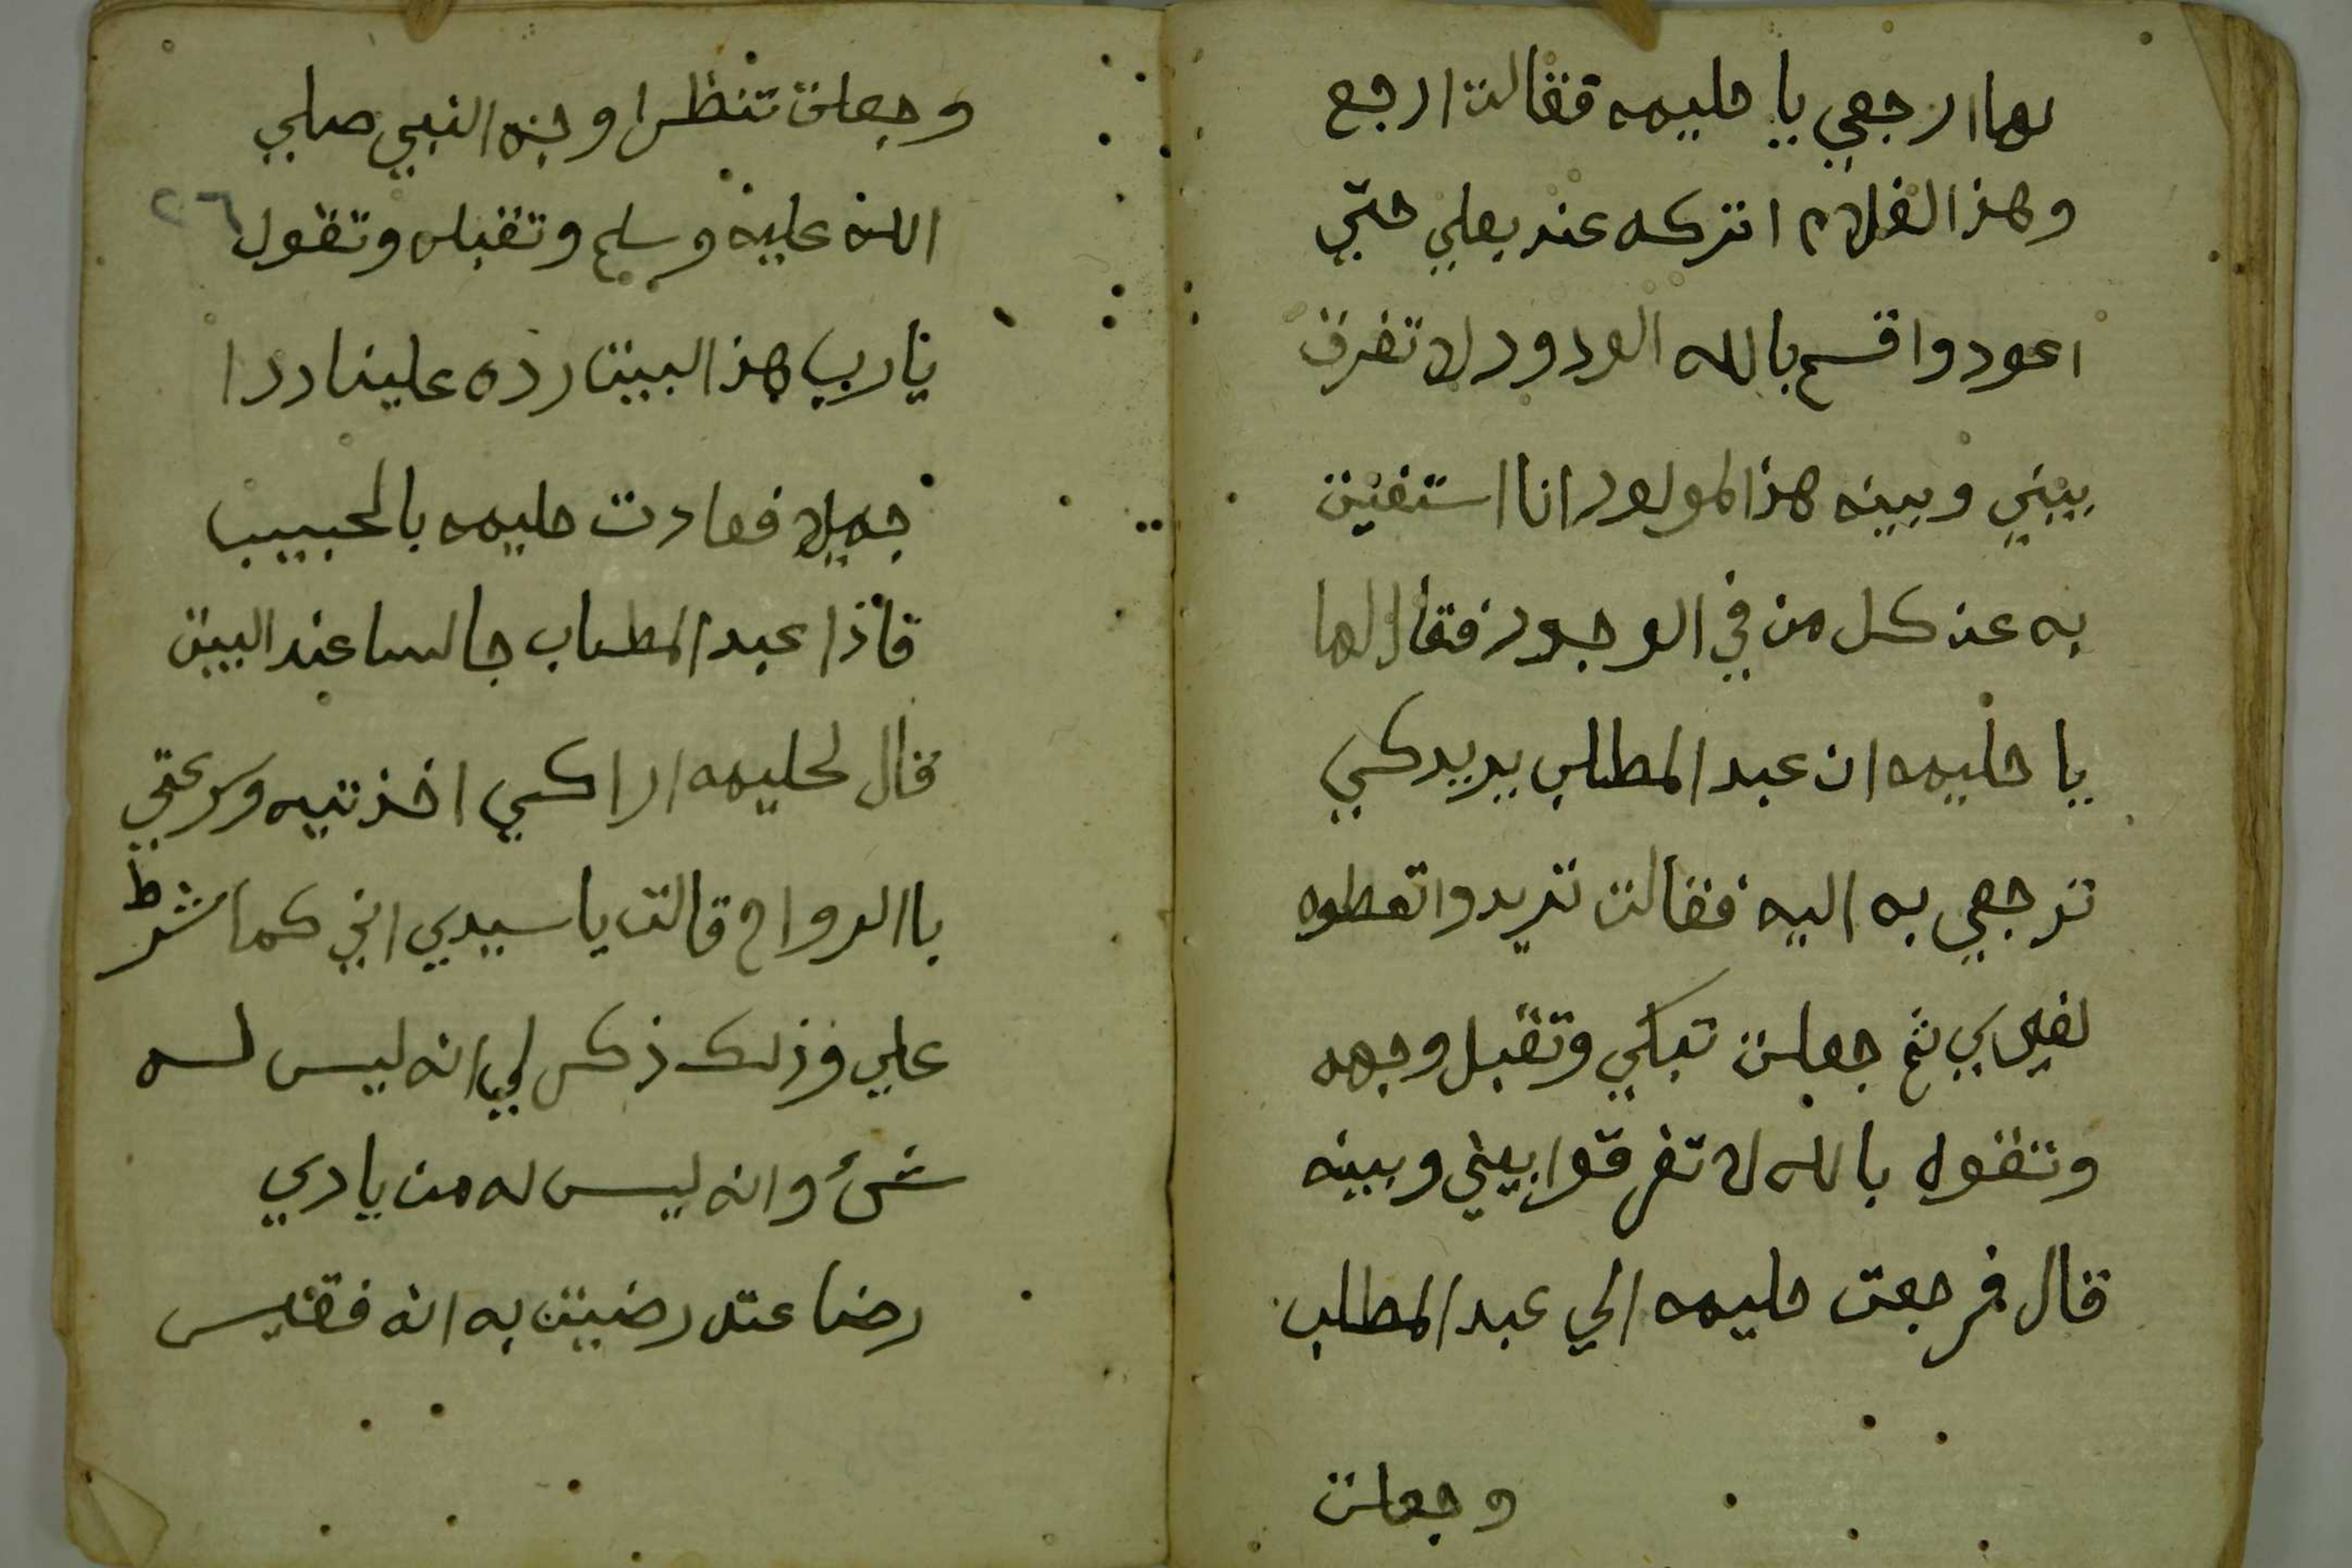 لها ارجعي يا حليمه فقالت ارجع
وهذا الغلام اتركه عند بعلي حتي
اعود واقسم بالله الودود لا تفرق
بيني وبينه هذا المولود انا استغنيت
به عن كل من في الوجود فقال لها
يا حليمه ان عبد المطلب يريدكي
ترجعي به اليه فقالت تريدوا تعطوه
لغيري ثم جعلت تبكي وتقبل وجهه
وتقول بالله لا تفرقوا بيني وبينه
قال فرجعت حليمه الي عبد المطلب
وجعلت
وجعلت تنظر اوجه النبي صلي
الله عليه وسلم وتقبله وتقول
٢٦
يا رب هذا البيت رده علينا ردا
جميلا فعادت حليمه بالحبيب
فاذا عبد المطلب جالسا عند البيت
قال لحليمه اراكي اخذتيه وسرعتي
باالرواح قالت يا سيدي اني كما شرط
علي وذلك ذكر لي انه ليس له
شئ وانه ليس له من يادي
رضاعته رضيت به انه فقير